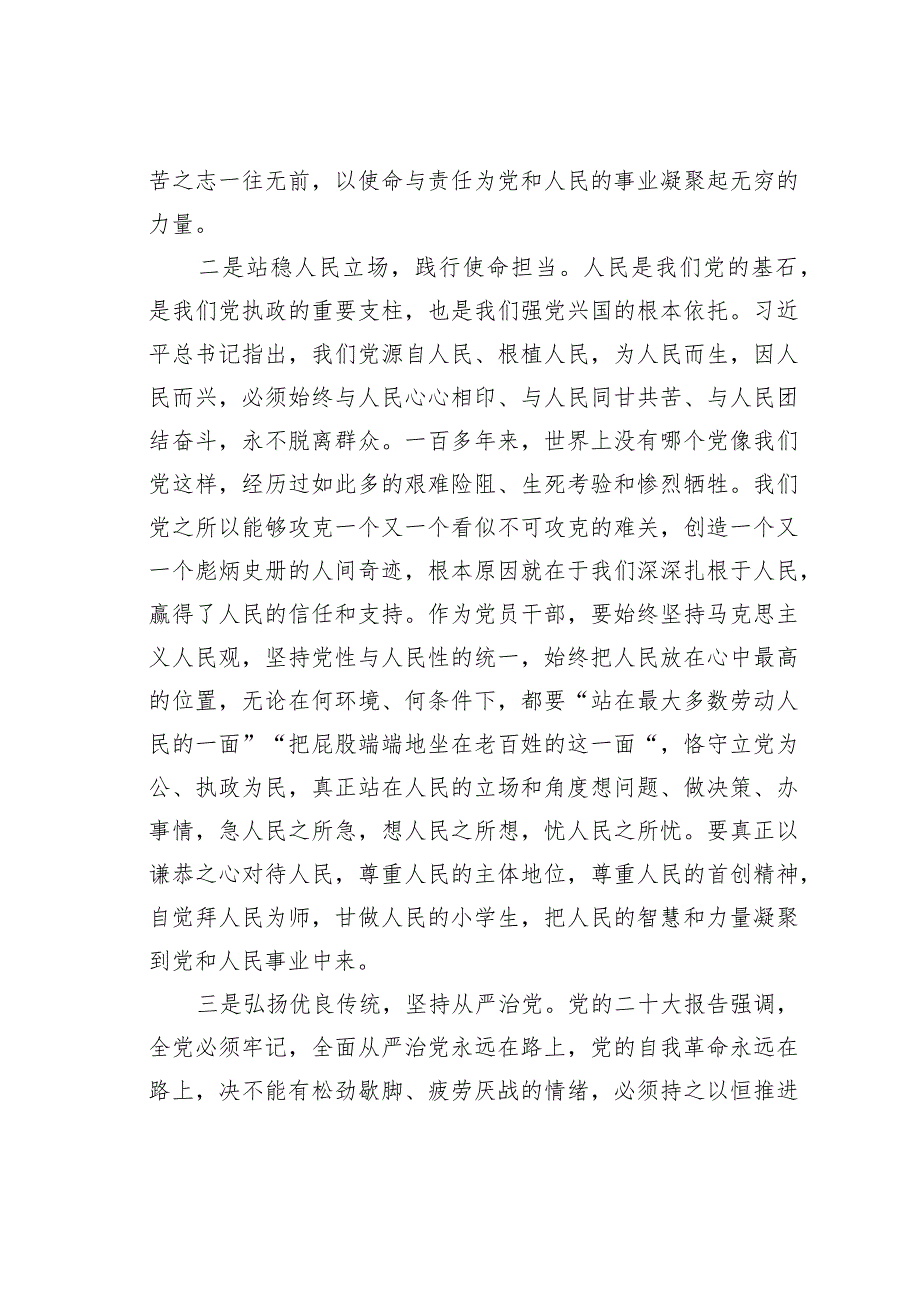 苦之志一往无前，以使命与责任为党和人民的事业凝聚起无穷的
力量。
二是站稳人民立场，践行使命担当。人民是我们党的基石，
是我们党执政的重要支柱，也是我们强党兴国的根本依托。习近
平总书记指出，我们党源自人民、根植人民，为人民而生，因人
民而兴，必须始终与人民心心相印、与人民同甘共苦、与人民团
结奋斗，永不脱离群众。一百多年来，世界上没有哪个党像我们
党这样，经历过如此多的艰难险阻、生死考验和惨烈牺牲。我们
党之所以能够攻克一个又一个看似不可攻克的难关，创造一个又
一个彪炳史册的人间奇迹，根本原因就在于我们深深扎根于人民，
赢得了人民的信任和支持。作为党员干部，要始终坚持马克思主
义人民观，坚持党性与人民性的统一，始终把人民放在心中最高
的位置，无论在何环境、何条件下，都要“站在最大多数劳动人
民的一面”“把屁股端端地坐在老百姓的这一面“，恪守立党为
公、执政为民，真正站在人民的立场和角度想问题、做决策、办
事情，急人民之所急，想人民之所想，忧人民之所忧。要真正以
谦恭之心对待人民，尊重人民的主体地位，尊重人民的首创精神，
自觉拜人民为师，甘做人民的小学生，把人民的智慧和力量凝聚
到党和人民事业中来。
三是弘扬优良传统，坚持从严治党。党的二十大报告强调，
全党必须牢记，全面从严治党永远在路上，党的自我革命永远在
路上，决不能有松劲歇脚、疲劳厌战的情绪，必须持之以恒推进